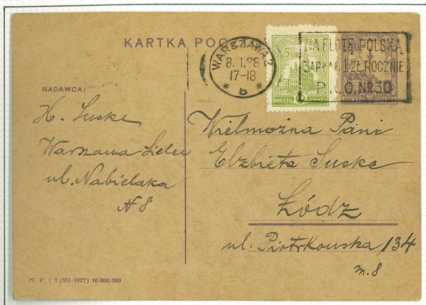 KARTKA POC
WARSZAWA 2
8. I. 28
17-18
* b *
NA FLOTĘ POLSKĄ
ZAPŁAĆ 1 ZŁ ROCZNIE
P.K.O. № 30
NADAWCA:
H. Suske
Warszawa
ul. Nabielaka
N 8
Wielmożna Pani
Elżbieta Suske
Łódź
ul. Piotrkowska 134
m. 8
(VII-1927) 10.000.000